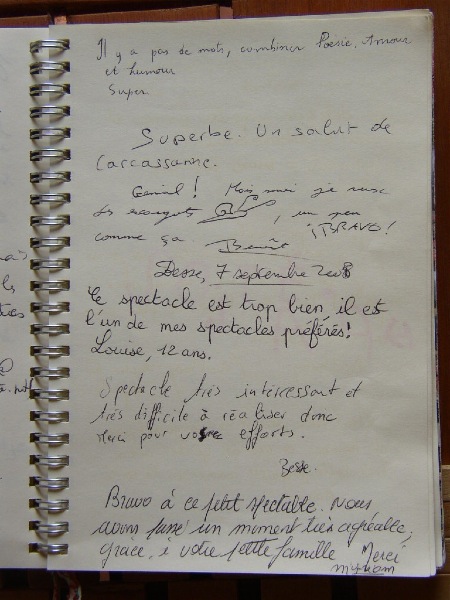 Il y a pas de mots, combiner Poésie, Amour
et humour
Super
Superbe. Un salut de
Carcassonne.
Genial! Mais moi je
des escargots, un peu
comme ça ¡BRAVO!
Benoît
Besse, 7 septembre 2008
Ce spectacle est trop bien, il est
l'un de mes spectacles préférés!
Louise, 12 ans.
Spectacle très intéressant et
très difficile à réaliser donc
Merci pour votre efforts.
Besse.
Bravo à ce petit spectacle. Nous
avons passé un moment très agréable,
grâce, à votre petite famille Merci
Myriam